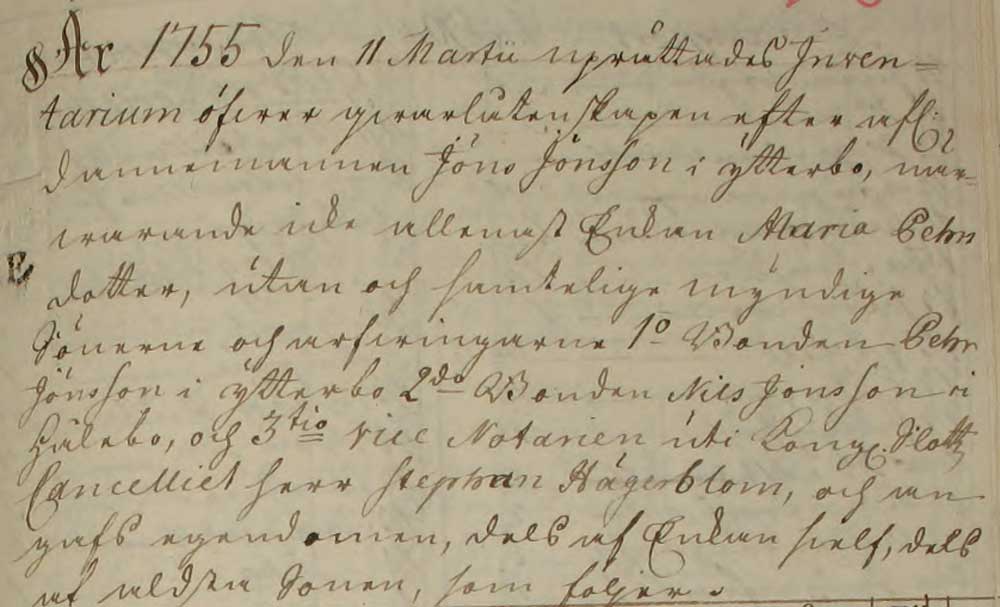 År 1755 den 11 Martii uprättades Inven=
tarium öfwer qwarlåtenskapen efter afl:
dannemannen Jöns Jönsson i ytterbo, när=
warande icke allenast Enkan Maria Pehrs
dotter, utan och samtelige myndige
Sönerne och arfwingarne 1o Bonden Pehr
Jönsson i ytterbo 2do Bonden Nils Jönsson i
bo, och 3tio vice Notarien uti Kongl. Slotts
Cancelliet herr Stephan Hägerblom, och an
gafs egendomen, dels af Enkan sielf, dels
af äldsta Sonen, som följer.